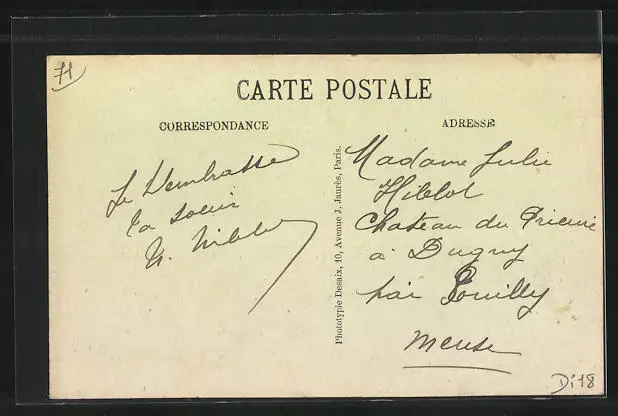 71
CARTE POSTALE
CORRESPONDANCE
ADRESSE
Je t'embrasse
ta soeur
Madame Julie
Hiblot
Chateau du Prieuré
à Dugny
par Pouilly
Meuse
Phototypie Desaix, 40, Avenue J. Jaurès, Paris.
Di18